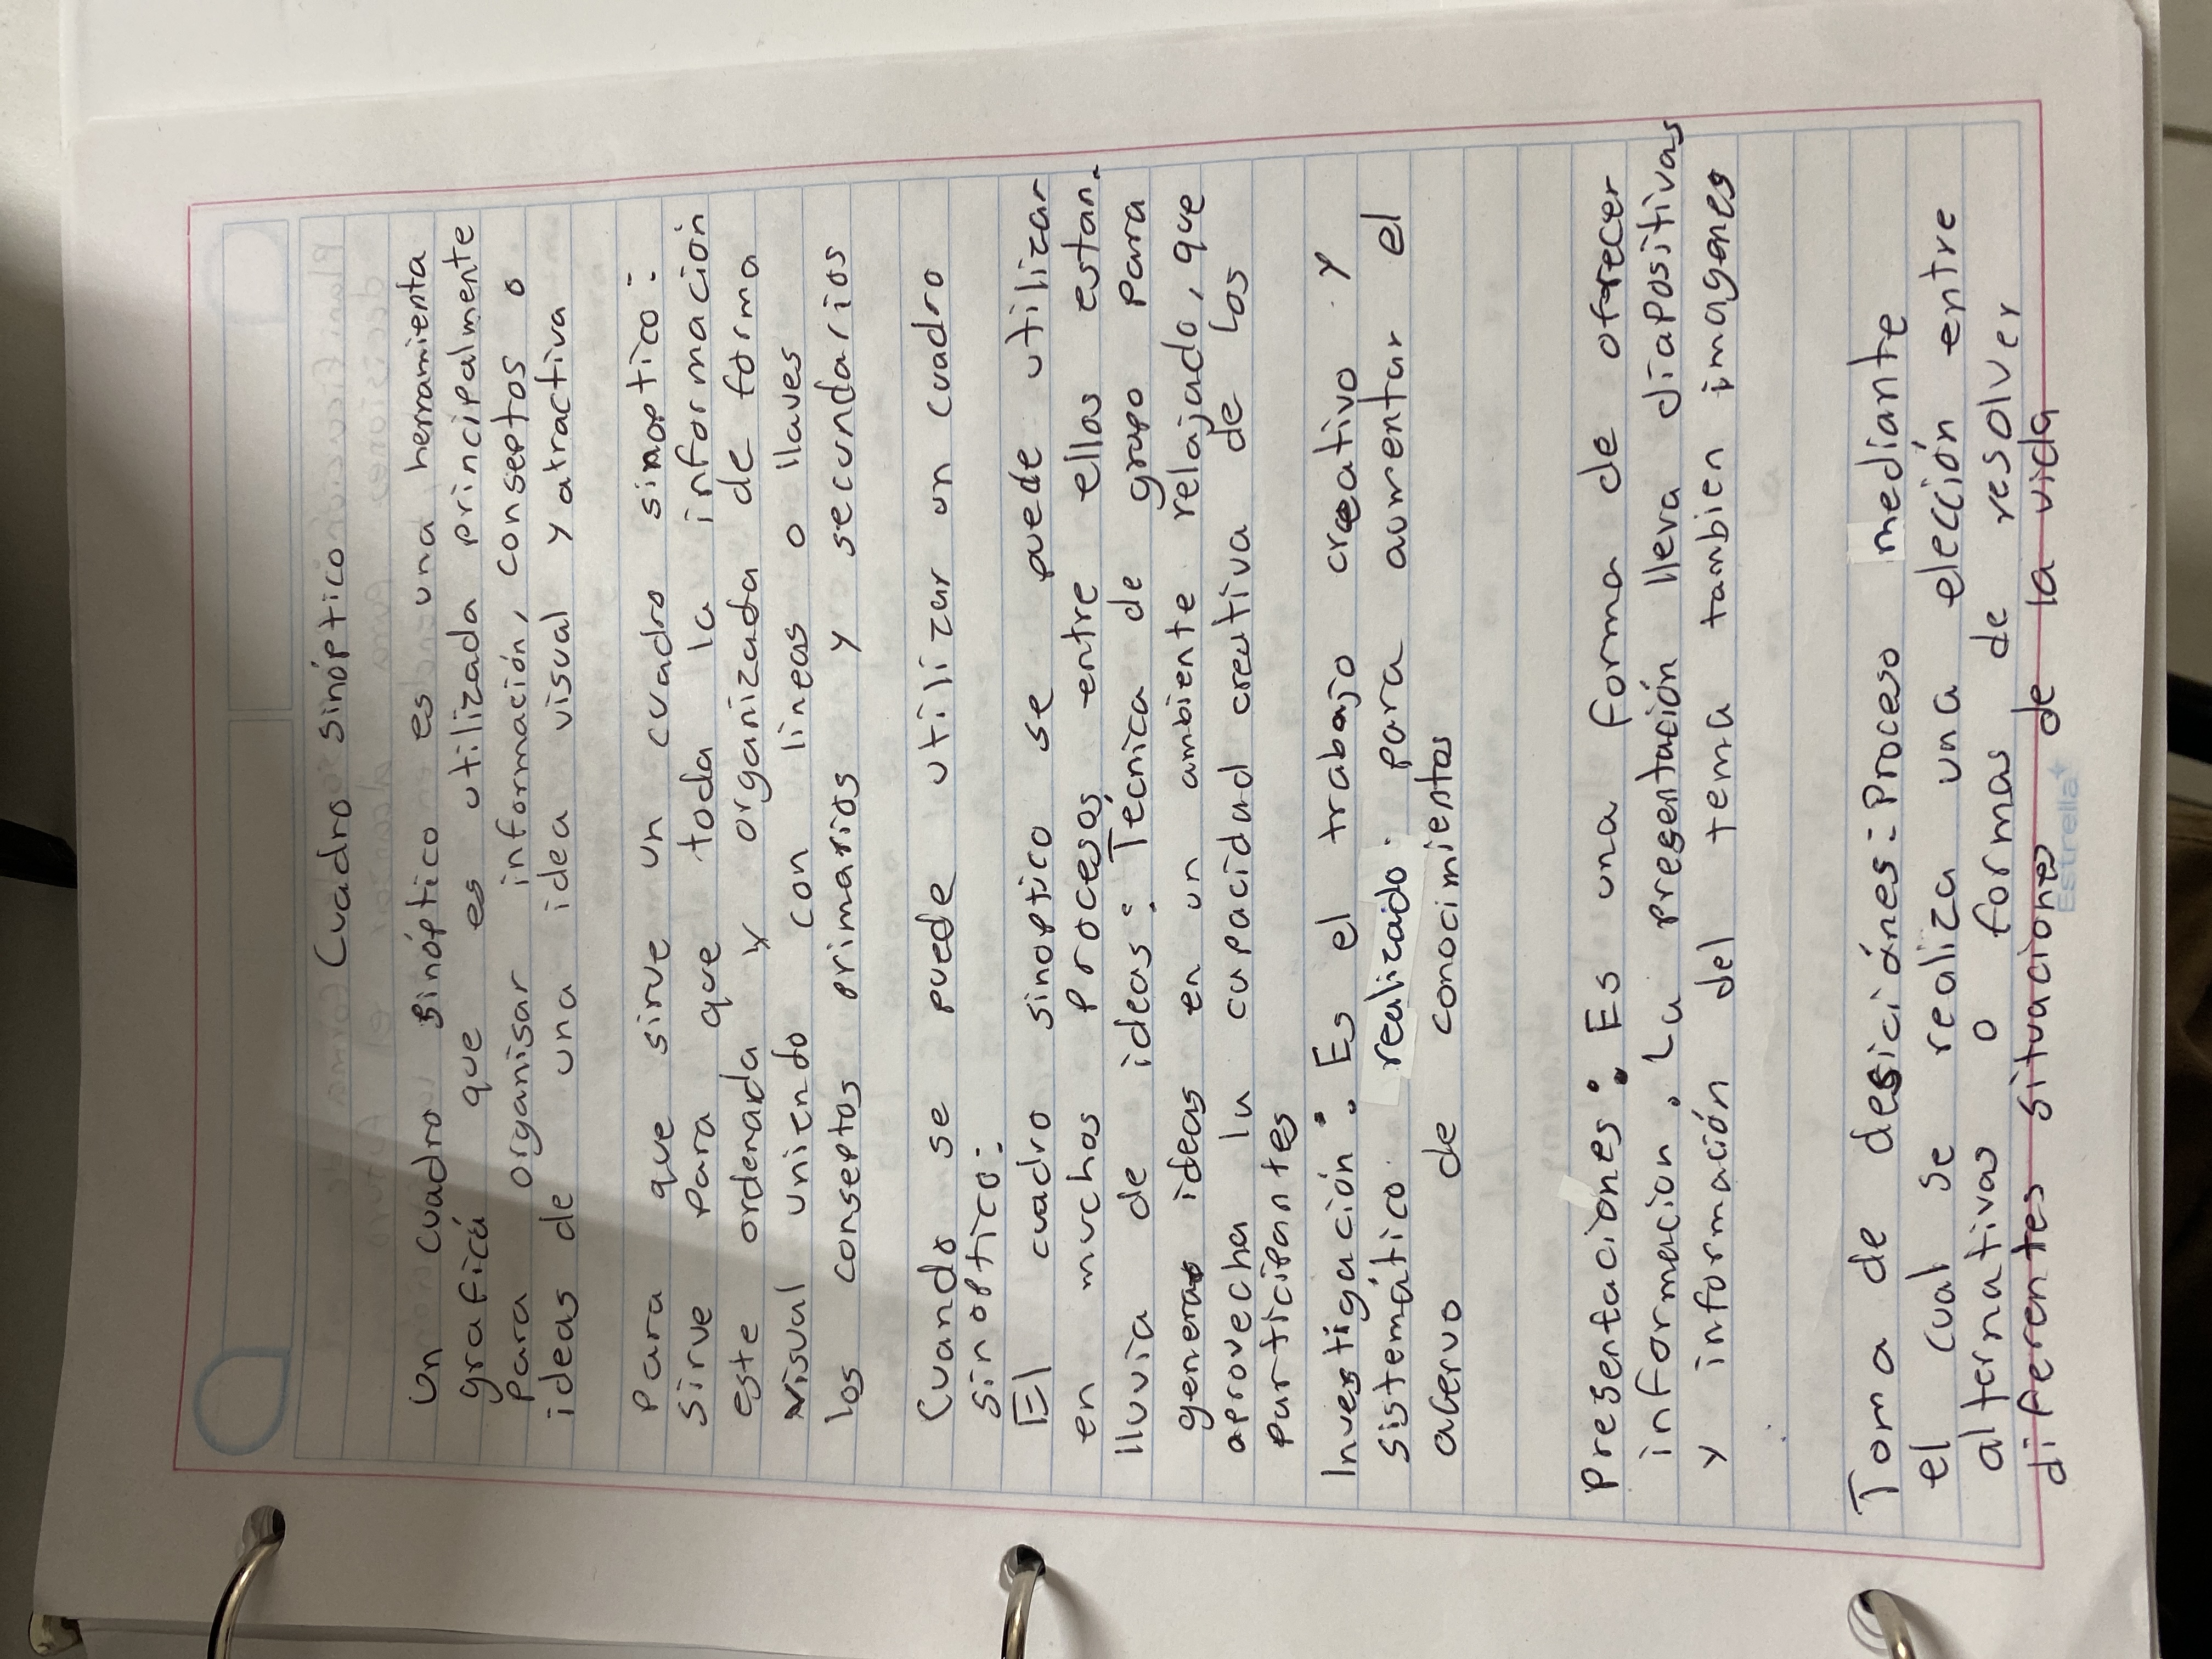 Cuadro sinóptico
Un cuadro sinóptico es una herramienta
grafica que es utilizada principalmente
para organisar información, conseptos o
ideas de una idea visual y atractiva
Para que sirve un cuadro sinoptico:
sirve para que toda la información
este ordenada y organizada de forma
visual uniendo con lineas o llaves
los conseptos primarios y secundarios
Cuando se puede utilizar un cuadro
sinoptico:
El cuadro sinoptico se puede utilizar
en muchos procesos entre ellos estan.
lluvia de ideas: Técnica de grupo para
generar ideas en un ambiente relajado, que
aprovecha la capacidad creativa de los
participantes
Investigación: Es el trabajo creativo y
sistemático realizado para aumentar el
acervo de conocimientos
Presentaciones: Es una forma de ofrecer
informacion. La presentación lleva diapositivas
y información del tema tambien imagenes
Toma de desiciónes: Proceso mediante
el cual se realiza una elección entre
alternativas o formas de resolver
diferentes situaciones de la vida
Estrella